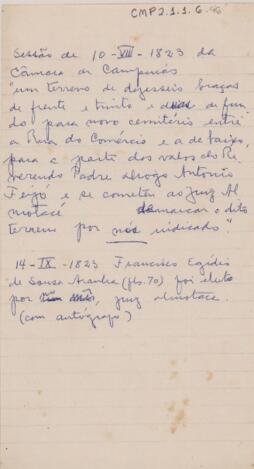 CMP2.1.1.6.
Sessão de 10-VIII-1823 da
Câmara de Campinas
"um terreno de dezesseis braças
de frente e trinta e duas de fun
do para novo cemitério entre
a Rua do Comércio e a de baixo,
para a parte dos valos do Re
verendo Padre Diogo Antonio
Feijó e se cometeu ao Juiz Al
motacé demarcar o dito
terreno por nós indicado"
14-IX-1823 Francisco Egídio
de Sousa Aranha (fls. 70) foi eleito
por mês, juiz almotacé.
(com autógrafo)